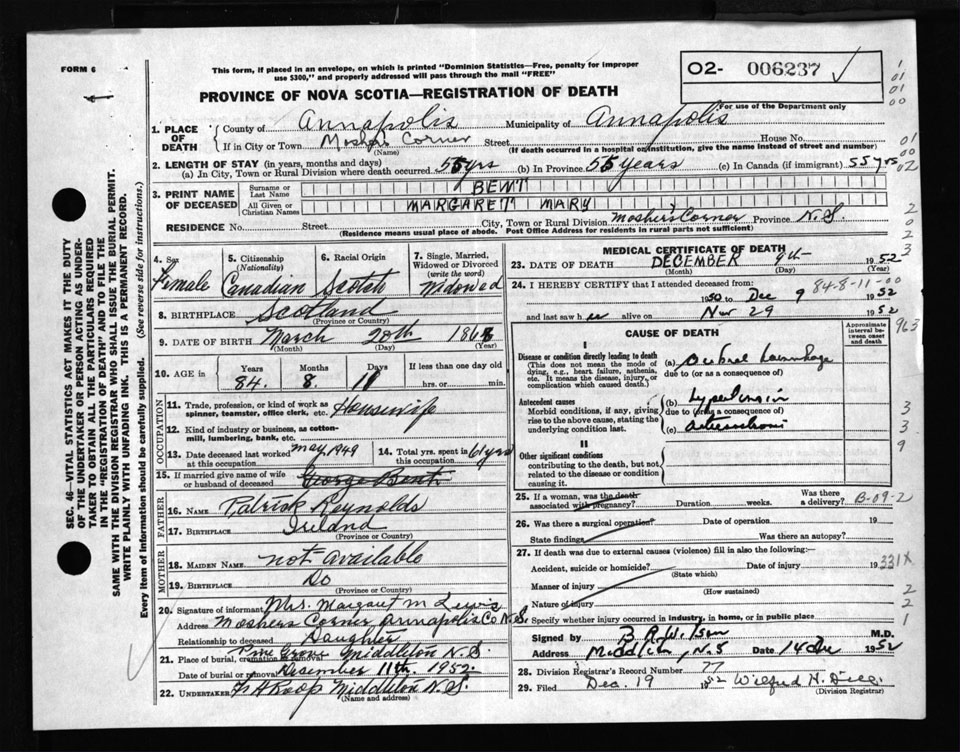 FORM 6
This form, if placed in an envelope, on which is printed "Dominion Statistics—Free, penalty for improper
use $300," and properly addressed will pass through the mail "FREE"
O2- 006237
PROVINCE OF NOVA SCOTIA—REGISTRATION OF DEATH
For use of the Department only
1. PLACE OF DEATH
County of Annapolis Municipality of Annapolis
If in City or Town Moshers Corner Street House No.
(Name) (If death occurred in a hospital or institution, give the name instead of street and number)
2. LENGTH OF STAY (in years, months and days)
(a) In City, Town or Rural Division where death occurred 55 yrs (b) In Province 55 years (c) In Canada (if immigrant) 55 yrs
3. PRINT NAME OF DECEASED
Surname or Last Name BENT
All Given or Christian Names MARGARETT MARY
RESIDENCE No. Street City, Town or Rural Division Mosher's Corner Province N.S.
(Residence means usual place of abode. Post Office Address for residents in rural parts not sufficient)
SEC. 46—VITAL STATISTICS ACT MAKES IT THE DUTY
OF THE UNDERTAKER OR PERSON ACTING AS UNDER-
TAKER TO OBTAIN ALL THE PARTICULARS REQUIRED
IN THE "REGISTRATION OF DEATH" AND TO FILE THE
SAME WITH THE DIVISION REGISTRAR WHO SHALL ISSUE THE BURIAL PERMIT.
WRITE PLAINLY WITH UNFADING INK. THIS IS A PERMANENT RECORD.
Every item of information should be carefully supplied. (See reverse side for instructions.)
4. Sex Female
5. Citizenship (Nationality) Canadian
6. Racial Origin Scotch
7. Single, Married, Widowed or Divorced (write the word) Widowed
8. BIRTHPLACE Scotland
(Province or Country)
9. DATE OF BIRTH March 20th 1868
(Month) (Day) (Year)
10. AGE in Years Months Days If less than one day old
84. 8. 11 hrs. or min.
OCCUPATION
11. Trade, profession, or kind of work as spinner, teamster, office clerk, etc. Housewife
12. Kind of industry or business, as cotton-mill, lumbering, bank, etc.
13. Date deceased last worked at this occupation May 1949
14. Total yrs. spent in this occupation 61 yrs
15. If married give name of wife or husband of deceased George Bent
FATHER
16. NAME Patrick Reynolds
17. BIRTHPLACE Ireland
(Province or Country)
MOTHER
18. MAIDEN NAME not available
19. BIRTHPLACE Do
(Province or Country)
20. Signature of informant Mrs. Margaret M Lewis
Address Moshers Corner Annapolis Co N.S.
Relationship to deceased Daughter
21. Place of burial, cremation or removal Pine Grove Middleton N.S.
Date of burial or removal December 11th. 1952.
22. UNDERTAKER Middleton N.S.
(Name and address)
MEDICAL CERTIFICATE OF DEATH
23. DATE OF DEATH DECEMBER 9th 1952
(Month) (Day) (Year)
24. I HEREBY CERTIFY that I attended deceased from: 84-8-11-00
1950 to Dec 9 1952
and last saw her alive on Nov 29 1952
CAUSE OF DEATH
Approximate interval between onset and death
I
Disease or condition directly leading to death
(This does not mean the mode of dying, e.g., heart failure, asthenia, etc. It means the disease, injury, or complication which caused death.)
(a) Cerebral haemorrhage
due to (or as a consequence of)
Antecedent causes
Morbid conditions, if any, giving rise to the above cause, stating the underlying condition last.
(b) hypertension
due to (or as a consequence of)
(c)
II
Other significant conditions
contributing to the death, but not related to the disease or condition causing it.
963
25. If a woman, was the death associated with pregnancy? Duration weeks. Was there a delivery? B-09-2
26. Was there a surgical operation? Date of operation 19
State findings Was there an autopsy?
27. If death was due to external causes (violence) fill in also the following:—
Accident, suicide or homicide? Date of injury 19 331X
(State which)
Manner of injury
(How sustained)
Nature of injury
Specify whether injury occurred in industry, in home, or in public place
Signed by M.D.
Address Middleton, N.S Date 14 Dec 1952
28. Division Registrar's Record Number 77
29. Filed Dec. 19 1952 Wilfred H.
(Division Registrar)